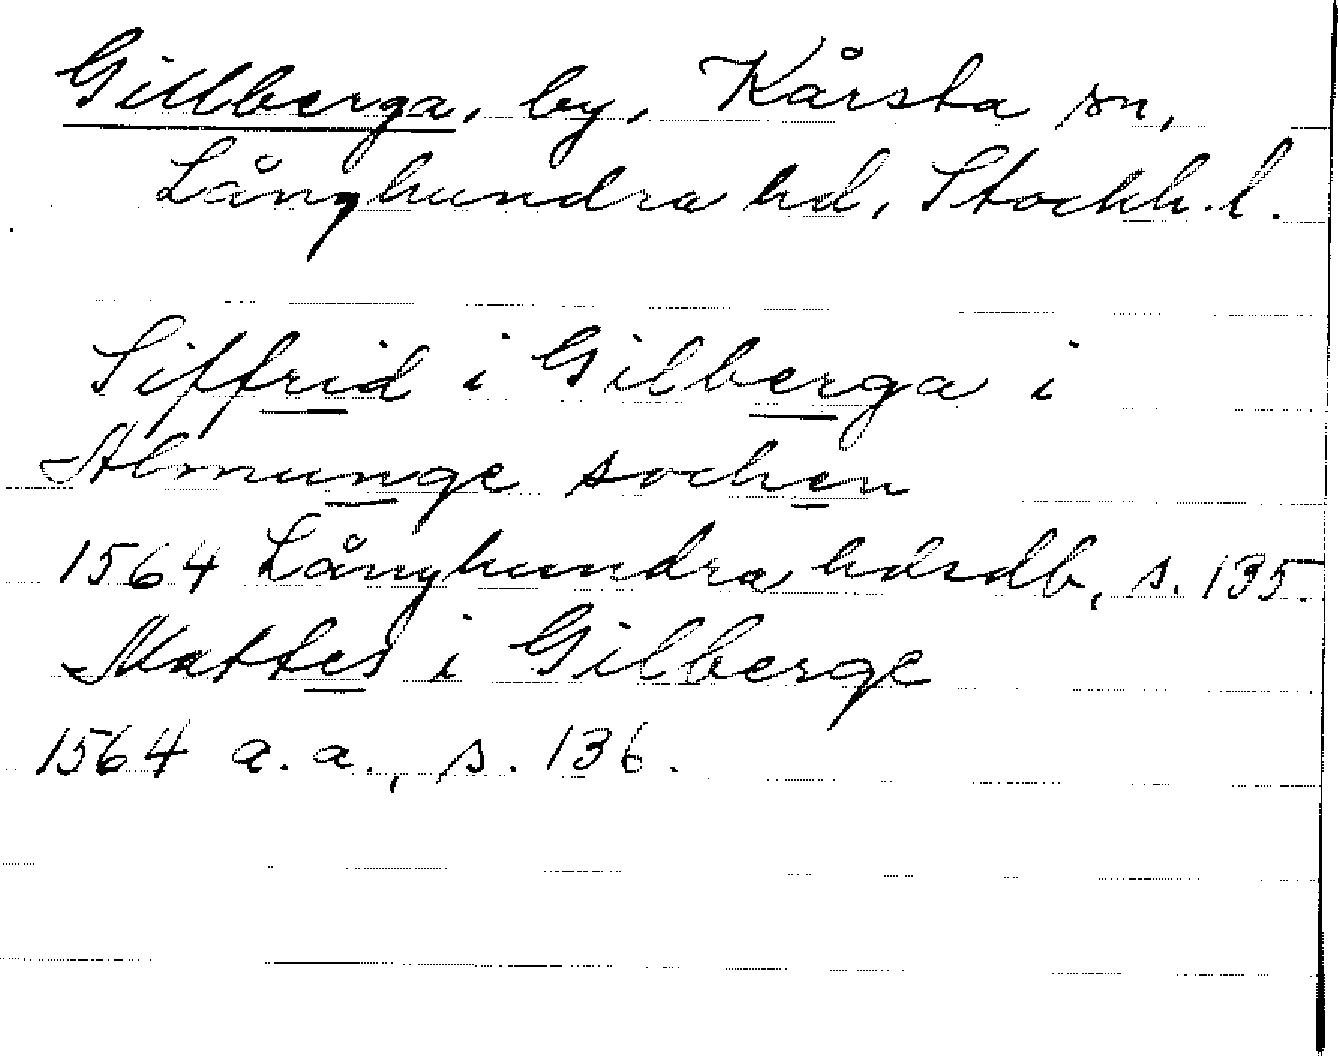 Gillberga, by, Kårsta sn,
Långhundra hd, Stockh. l.
Siffrid i Gilberga i
Almunge sochen
1564 Långhundra hdsdb, s. 135.
Mattes i Gilberge
1564 a. a., s. 136.